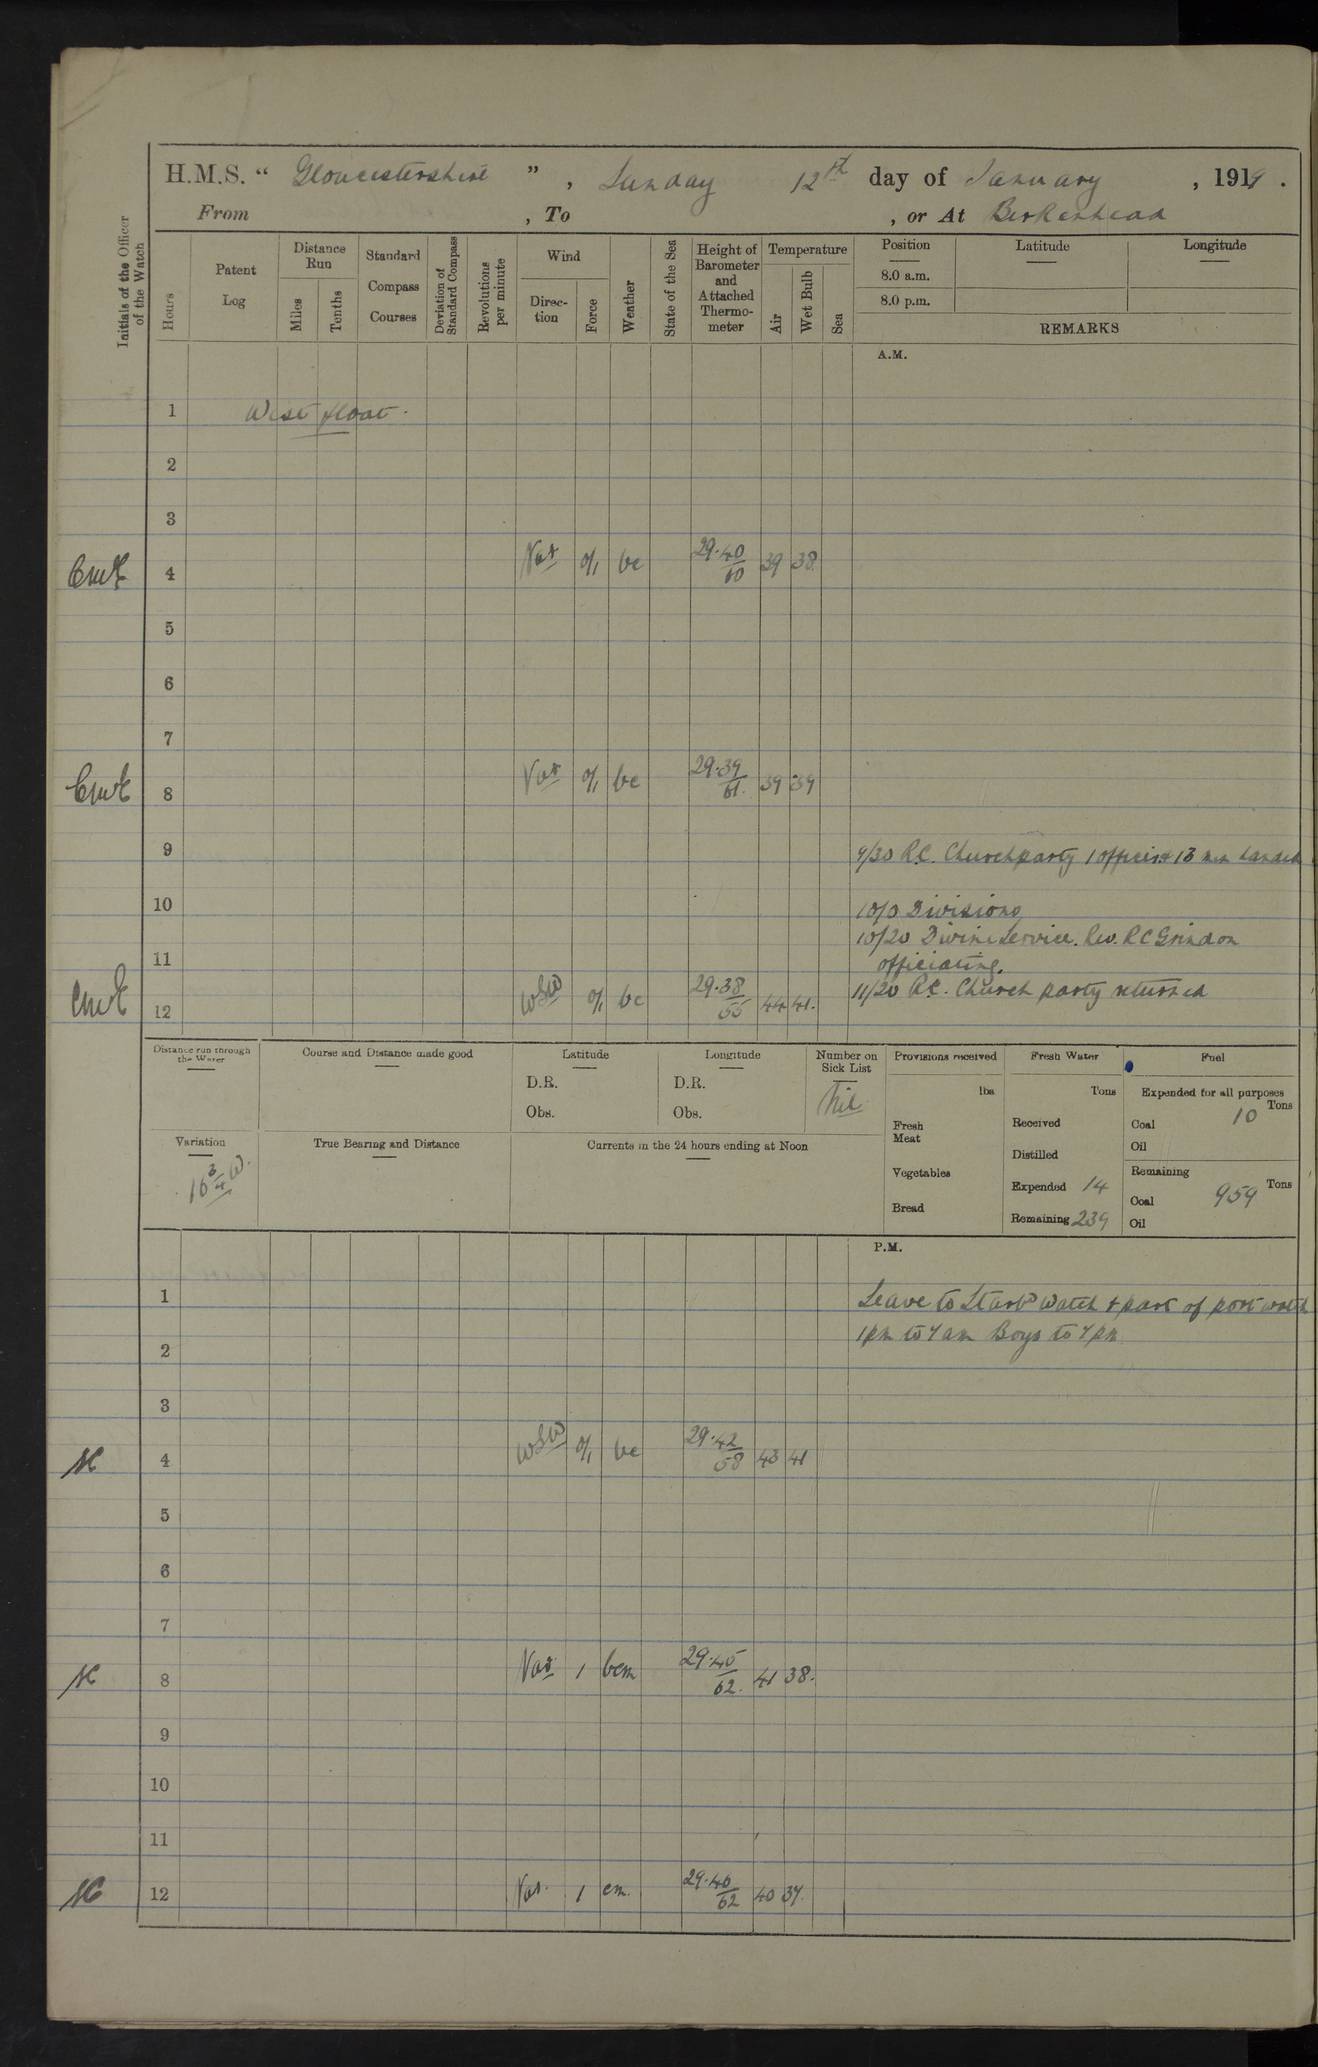 H.M.S. “ Gloucestershire ” , Sunday 12th day of January , 1919 .
From , To , or At Birkenhead
Initials of the Officer of the Watch
Hours
Patent Log
Distance Run
Miles
Tenths
Standard Compass Courses
Deviation of Standard Compass
Revolutions per minute
Wind
Direc-tion
Force
Weather
State of the Sea
Height of Barometer and Attached Thermo-meter
Temperature
Air
Wet Bulb
Sea
Position Latitude Longitude
8.0 a.m.
8.0 p.m.
REMARKS
A.M.
1 West float.
2
3
4 Var 0/1 bc 29.40/60 39 38
5
6
7
8 Var 0/1 bc 29.39/61. 39 39
9 9/30 R.C. Church party 1 officer + 13 men landed
10 10/0 Divisions
10/20 Divine Service. Rev. R C Grindon
11 officiating.
12 WSW 0/1 bc 29.38/55 44 41. 11/20 R.C. Church party returned
Distance run through the Water
Course and Distance made good
Latitude
D.R.
Obs.
Longitude
D.R.
Obs.
Number on Sick List
Nil
Provisions received
lbs
Fresh Meat
Vegetables
Bread
Fresh Water
Tons
Received
Distilled
Expended 14
Remaining 239
Fuel
Expended for all purposes
Tons
Coal 10
Oil
Remaining
Tons
Coal 959
Oil
Variation
16 3/4 W.
True Bearing and Distance
Currents in the 24 hours ending at Noon
P.M.
1 Leave to Starbd Watch + part of port watch
2 1pm to 7am Boys to 7pm
3
4 WSW 0/1 bc 29.42/58 43 41
5
6
7
8 Var 1 bcm 29.45/62. 41 38.
9
10
11
12 Var. 1 cm 29.40/62 40 37.